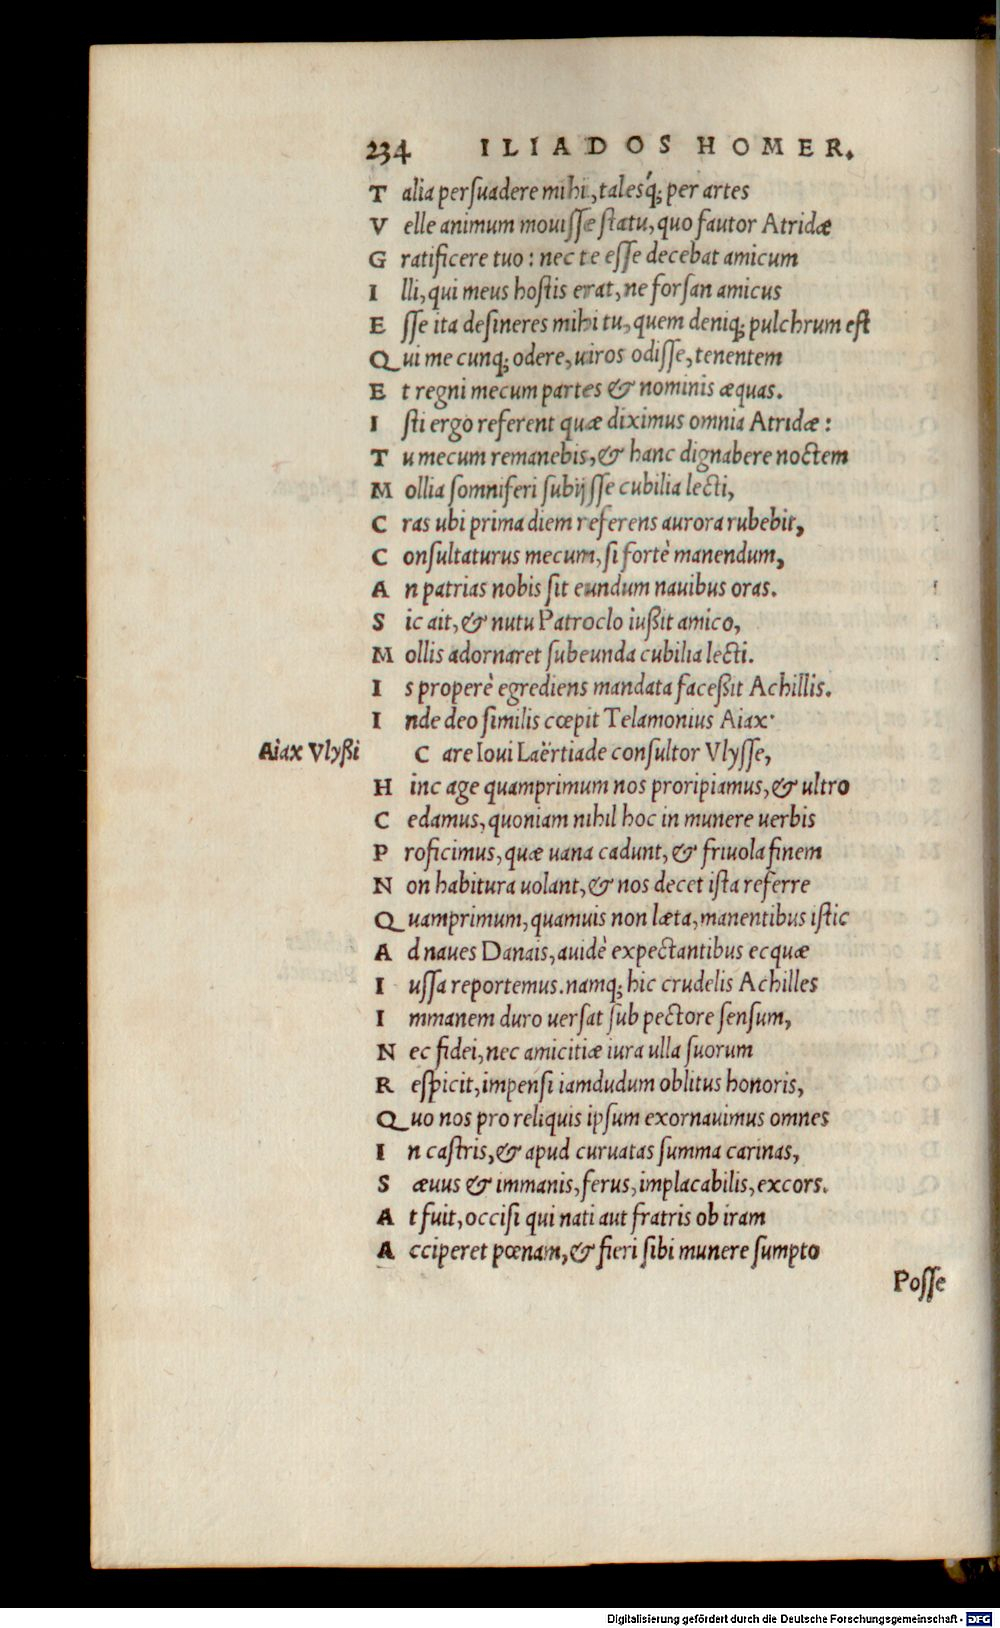 234 ILIADOS HOMER.
Talia perſuadere mihi, talesq́; per artes
Velle animum mouiſſe ſtatu, quo fautor Atridæ
Gratificere tuo: nec te eſſe decebat amicum
Illi, qui meus hoſtis erat, ne forſan amicus
Eſſe ita deſineres mihi tu, quem deniq; pulchrum eſt
Qui me cunq; odere, uiros odiſſe, tenentem
Et regni mecum partes & nominis æquas.
Iſti ergo referent quæ diximus omnia Atridæ:
Tu mecum remanebis, & hanc dignabere noctem
Mollia ſomniferi ſubijſſe cubilia lecti,
Cras ubi prima diem referens aurora rubebit,
Conſultaturus mecum, ſi fortè manendum,
An patrias nobis ſit eundum nauibus oras.
Sic ait, & nutu Patroclo iußit amico,
Mollis adornaret ſubeunda cubilia lecti.
Is properè egrediens mandata faceßit Achillis.
Inde deo ſimilis cœpit Telamonius Aiax·
Aiax Vlyßi
Care Ioui Laërtiade conſultor Vlyſſe,
Hinc age quamprimum nos proripiamus, & ultro
Cedamus, quoniam nihil hoc in munere uerbis
Proficimus, quæ uana cadunt, & friuola finem
Non habitura uolant, & nos decet iſta referre
Quamprimum, quamuis non læta, manentibus iſtic
Ad naues Danais, auidè expectantibus ecquæ
Iuſſa reportemus. namq; hic crudelis Achilles
Immanem duro uerſat ſub pectore ſenſum,
Nec fidei, nec amicitiæ iura ulla ſuorum
Reſpicit, impenſi iamdudum oblitus honoris,
Quo nos pro reliquis ipſum exornauimus omnes
In caſtris, & apud curuatas ſumma carinas,
Sæuus & immanis, ferus, implacabilis, excors.
At fuit, occiſi qui nati aut fratris ob iram
Acciperet pœnam, & fieri ſibi munere ſumpto
Poſſe
Digitalisierung gefördert durch die Deutsche Forschungsgemeinschaft - DFG